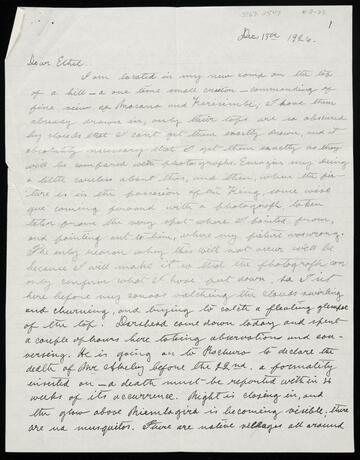 1
Dec 13th 1926.
Dear Ethel
I am located in my new camp on the top
of a hill – a one time small crater – commanding a
fine view of
already drawn in, only their tops are so obscured
by clouds that I cant get them exactly drawn, and it
absolutely necessary that I get them exactly as they
will be compared with photographs. Imagine my being
a little careless about this, and then, when the pic-
ture is in the possession of the King, some wise
guy coming forward with a photograph, taken
from the very spot where I painted from,
and pointing out to him, where my picture was wrong.
The only reason why this will not occur will be
because I will make it so that the photograph can
only confirm what I have put down, so I sit
here before my canvas watching the clouds smoking
and churning, and trying to catch a fleeting glimpse
of the top. Derscheid came down today and spent
a couple of hours here taking observations and con-
versing. He is going on to Rutshuru to declare the
death of Mr Akeley before the 22nd, a formality
insisted on – a death must be reported within
weeks of its occurrence. Night is closing in, and
the glow above Niamlagira is becoming visible; there
are no musquitos. There are native villages all around